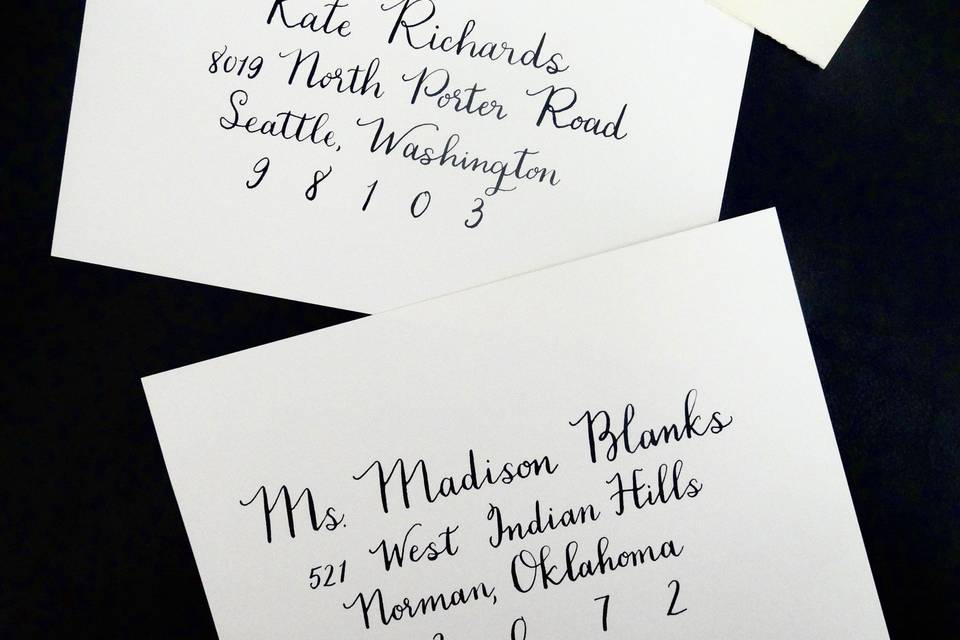 Kate Richards
8019 North Porter Road
Seattle, Washington
9 8 1 0 3
Ms. Madison Blanks
521 West Indian Hills
Norman, Oklahoma
7 2